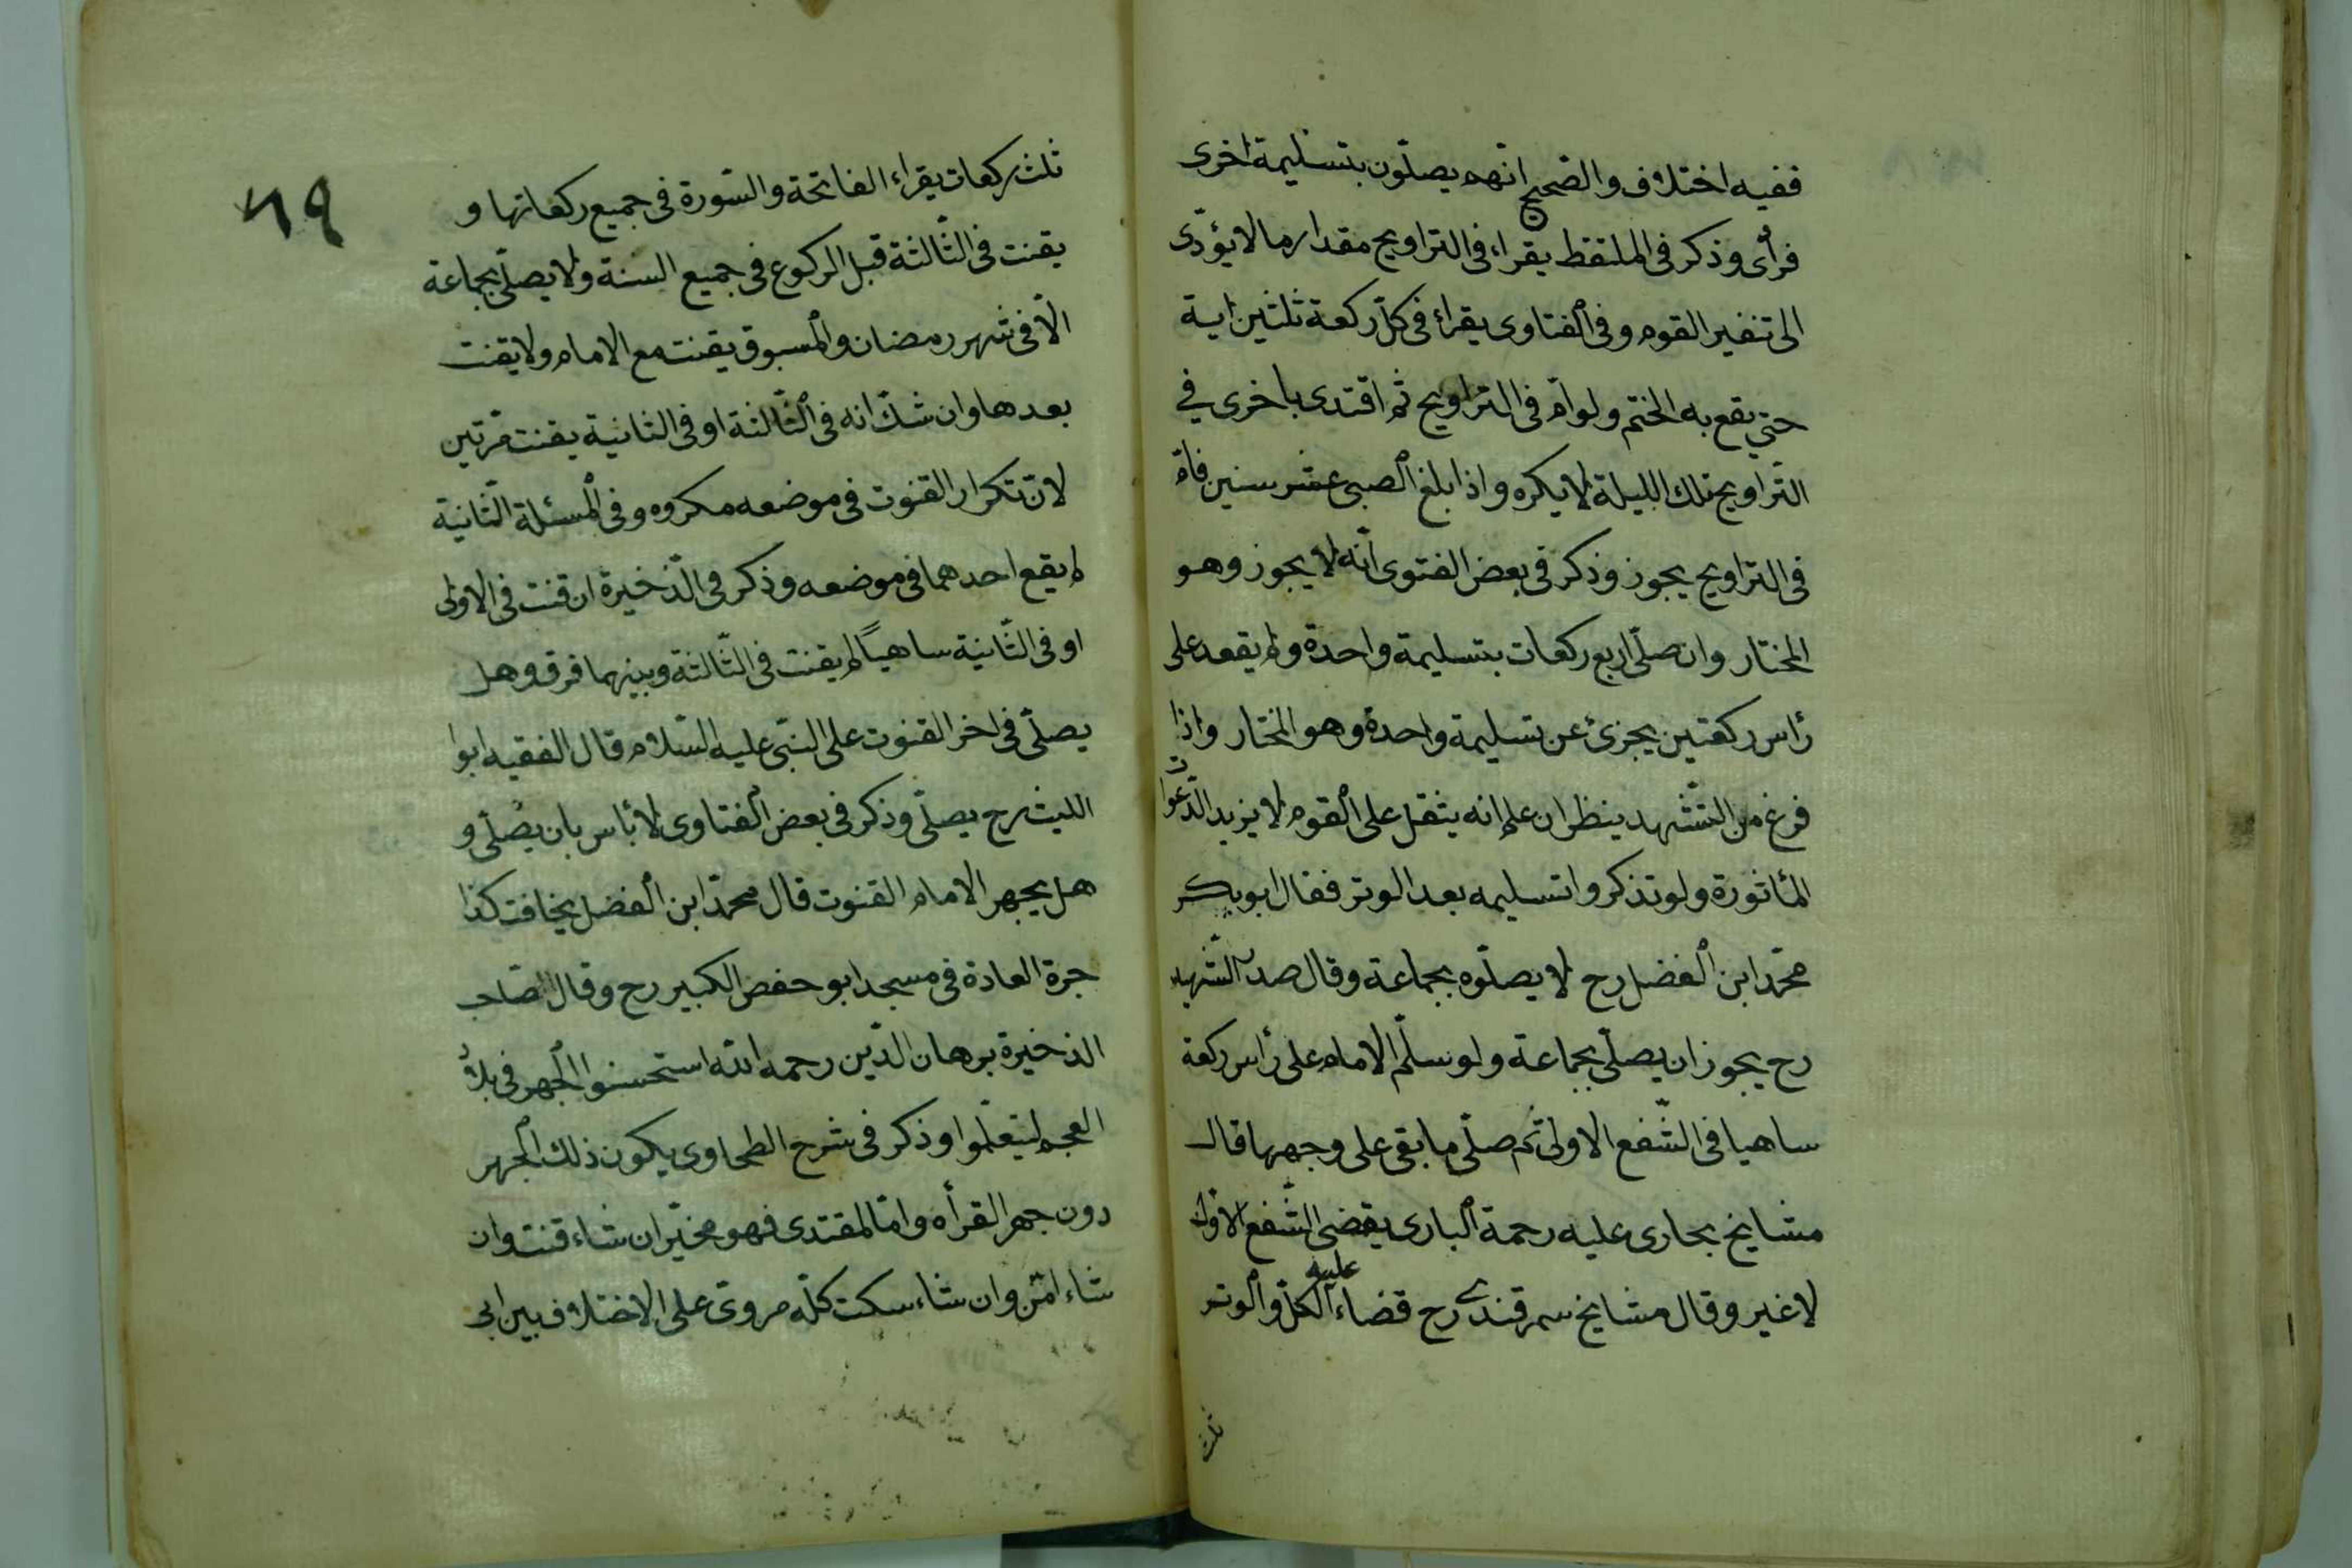 ففيه اختلاف والصحيح انهم يصلّون بتسليمة اخرى
فرأى وذكر فى الملتقط يقراء فى التراويح مقدار ما لا يؤدّى
الى تنفير القوم وفى الفتاوى يقراء فى كلّ ركعة ثلثين اية
حتى يقع به الختم ولو امّ فى التراويح ثم اقتدى باخرى في
التراويح تلك الليلة لا يكره واذا بلغ الصبى عشر سنين فامّ
فى التراويح يجوز وذكر فى بعض الفتوى انّه لا يجوز وهو
المختار وان صلّى اربع ركعات بتسليمة واحدة ولم يقعد على
رأس ركعتين يجزئ عن تسليمة واحدة وهو المختار واذا
فرغ من التشّهد ينظر ان علم انه يثقل على القوم لا يزيد الدّعوات
المأثورة ولو تذكروا تسليمه بعد الوتر فقال ابو بكر
محمّد ابن الفضل رح لا يصلّوه بجماعة وقال صدر الشّهيد
رح يجوز ان يصلّى بجماعة ولو سلّم الامام على رأس ركعة
ساهيا فى الشّفع الاولى ثم صلّى ما بقى على وجهها قال
مشايخ بخارى عليه رحمة البارى يقضى الشّفع الاوّل
لا غير وقال مشايخ سمرقندى رح عليه قضاء الكلّ والوتر
ثلث
٦٩
ثلث ركعات يقراء الفاتحة والسّورة فى جميع ركعاتها و
يقنت فى الثّالثة قبل الركوع فى جميع السنة ولا يصلّى بجماعة
الّا فى شهر رمضان والمسبوق يقنت مع الامام ولا يقنت
بعدها وان شكّ انه فى الثّالثة او فى الثانية يقنت مرّتين
لانّ تكرار القنوت فى موضعه مكروه وفى المسئلة الثّانية
لم يقع احدهما فى موضعه وذكر فى الذّخيرة ان قنت فى الاولى
او فى الثّانية ساهيًا لم يقنت فى الثّالثة وبينهما فرق وهل
يصلّى فى اخر القنوت على النبّى عليه السّلام قال الفقيه ابوا
الليث رح يصلّى وذكر فى بعض الفتاوى لا بأس بان يصلّى و
هل يجهر الامام القنوت قال محمّد ابن الفضل يخافت كذا
جرة العادة فى مسجد ابو حفص الكبير رح وقال صّاحب
الذخيرة برهان الدّين رحمه الله استحسنوا الجهر فى بلاد
العجم ليتعلّموا وذكر فى شرح الطحاوى يكون ذلك الجهر
دون جهر القرأه وامّا المقتدى فهو مخيّر ان شاء قنت وان
شاء امّن وان شاء سكت كلّه مروىّ على الاختلاف بين ابى